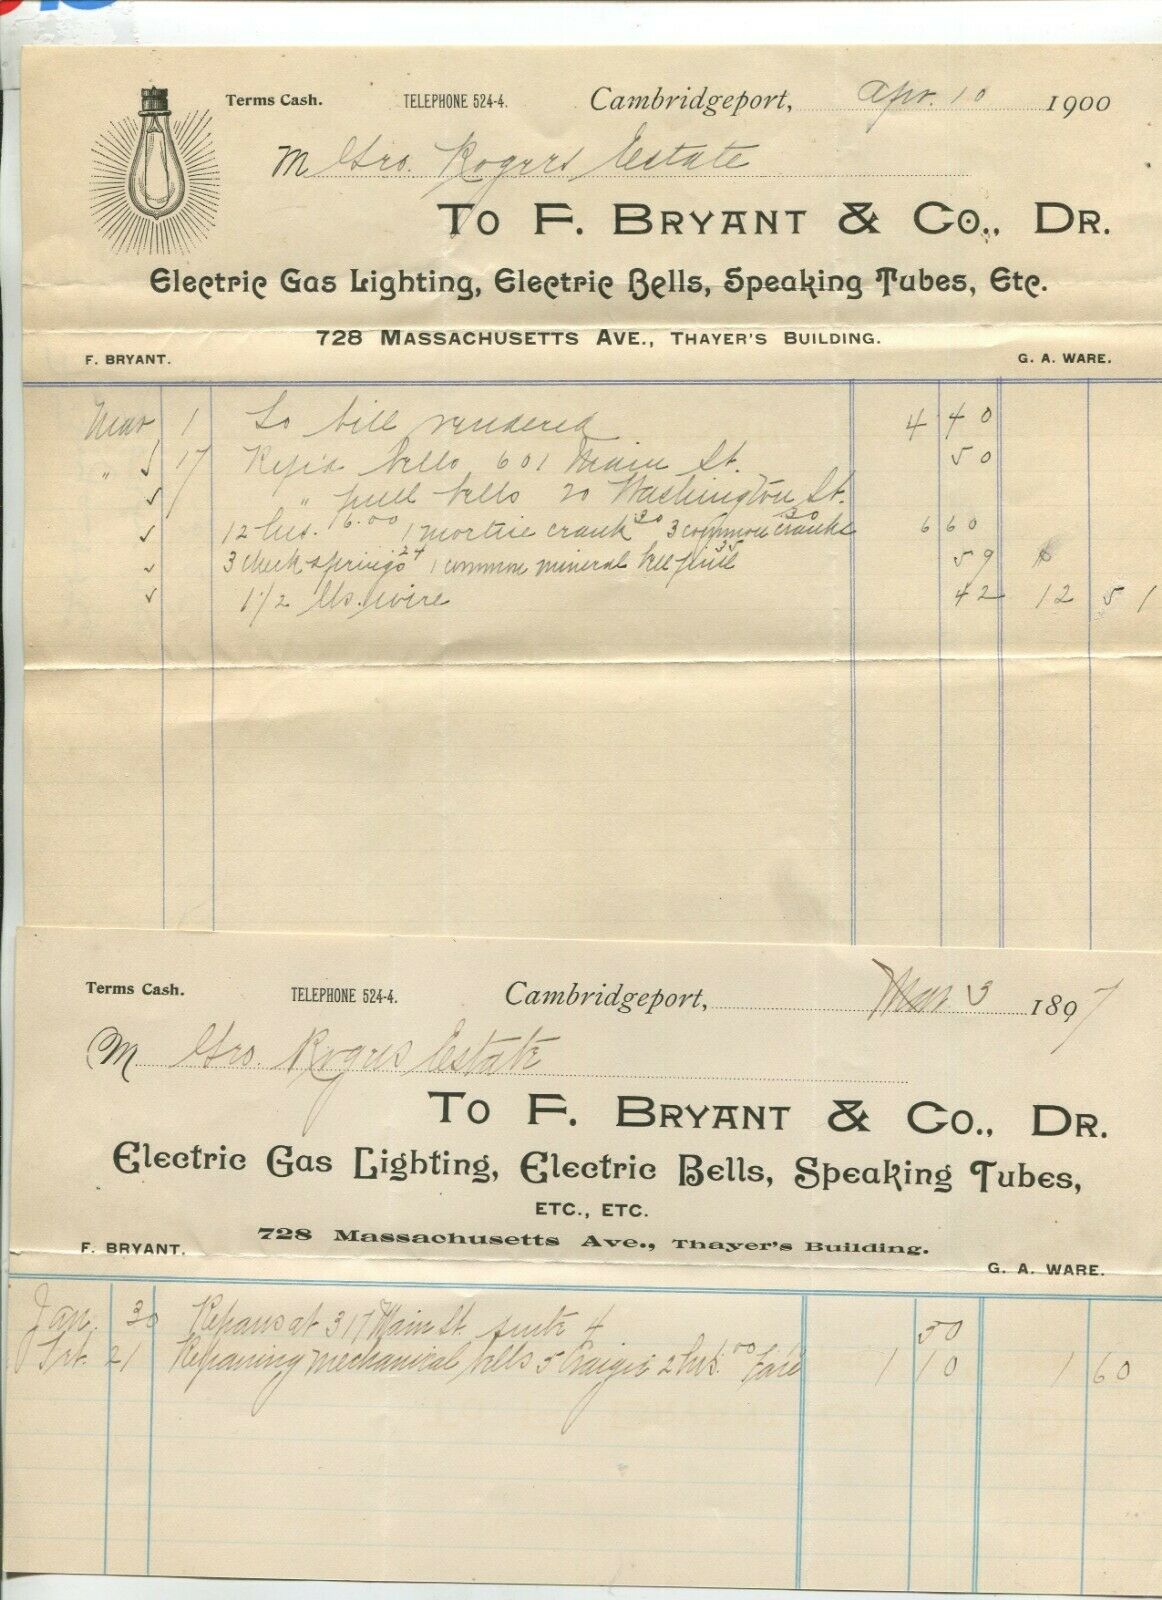 Terms Cash. TELEPHONE 524-4. Cambridgeport, Apr. 10 1900
M Geo. Rogers Estate
To F. Bryant & Co., Dr.
Electric Gas Lighting, Electric Bells, Speaking Tubes, Etc.
728 Massachusetts Ave., Thayer's Building.
F. BRYANT. G. A. WARE.
Mar 1 To bill rendered 4 40
" √ 17 Rep'd bells 601 Main St. 50
√ " pull bells 20 Washington St.
√ 12 hrs. 6.00 1 mortise crank 30 3 common cranks 30 6 60
√ 3 check springs 24 1 common mineral bell pull 35 59
√ 1 1/2 lbs. wire 42 12 51
Terms Cash. TELEPHONE 524-4. Cambridgeport, Mar 3 1897
M Geo. Rogers Estate
To F. Bryant & Co., Dr.
Electric Gas Lighting, Electric Bells, Speaking Tubes,
ETC., ETC.
728 Massachusetts Ave., Thayer's Building.
F. BRYANT. G. A. WARE.
Jan. 30 Repairs at 317 Main St. suite 4 50
Feb. 21 Repairing mechanical bells 5 Craigie 2 hrs. 00 Fare 1 10 1 60